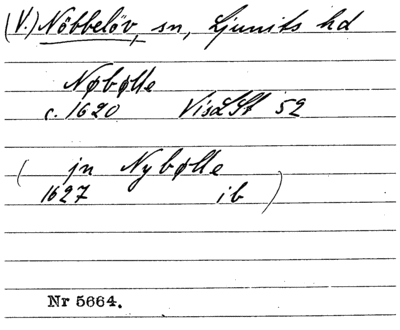 (V.) Nöbbelöv, sn, Ljunits hd
Nøbølle
c. 1620 VisLSt 52
( jn Nybølle
1627 ib )
Nr 5664.